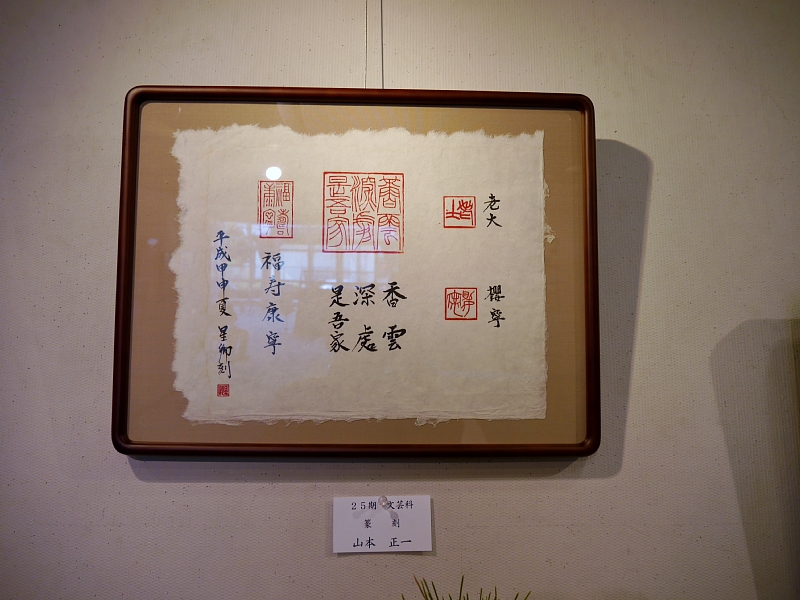 老大
櫻寧
香雲
深處
是吾家
福寿康寧
平成甲申夏 星卿刻
25期 文芸科
篆 刻
山本 正一